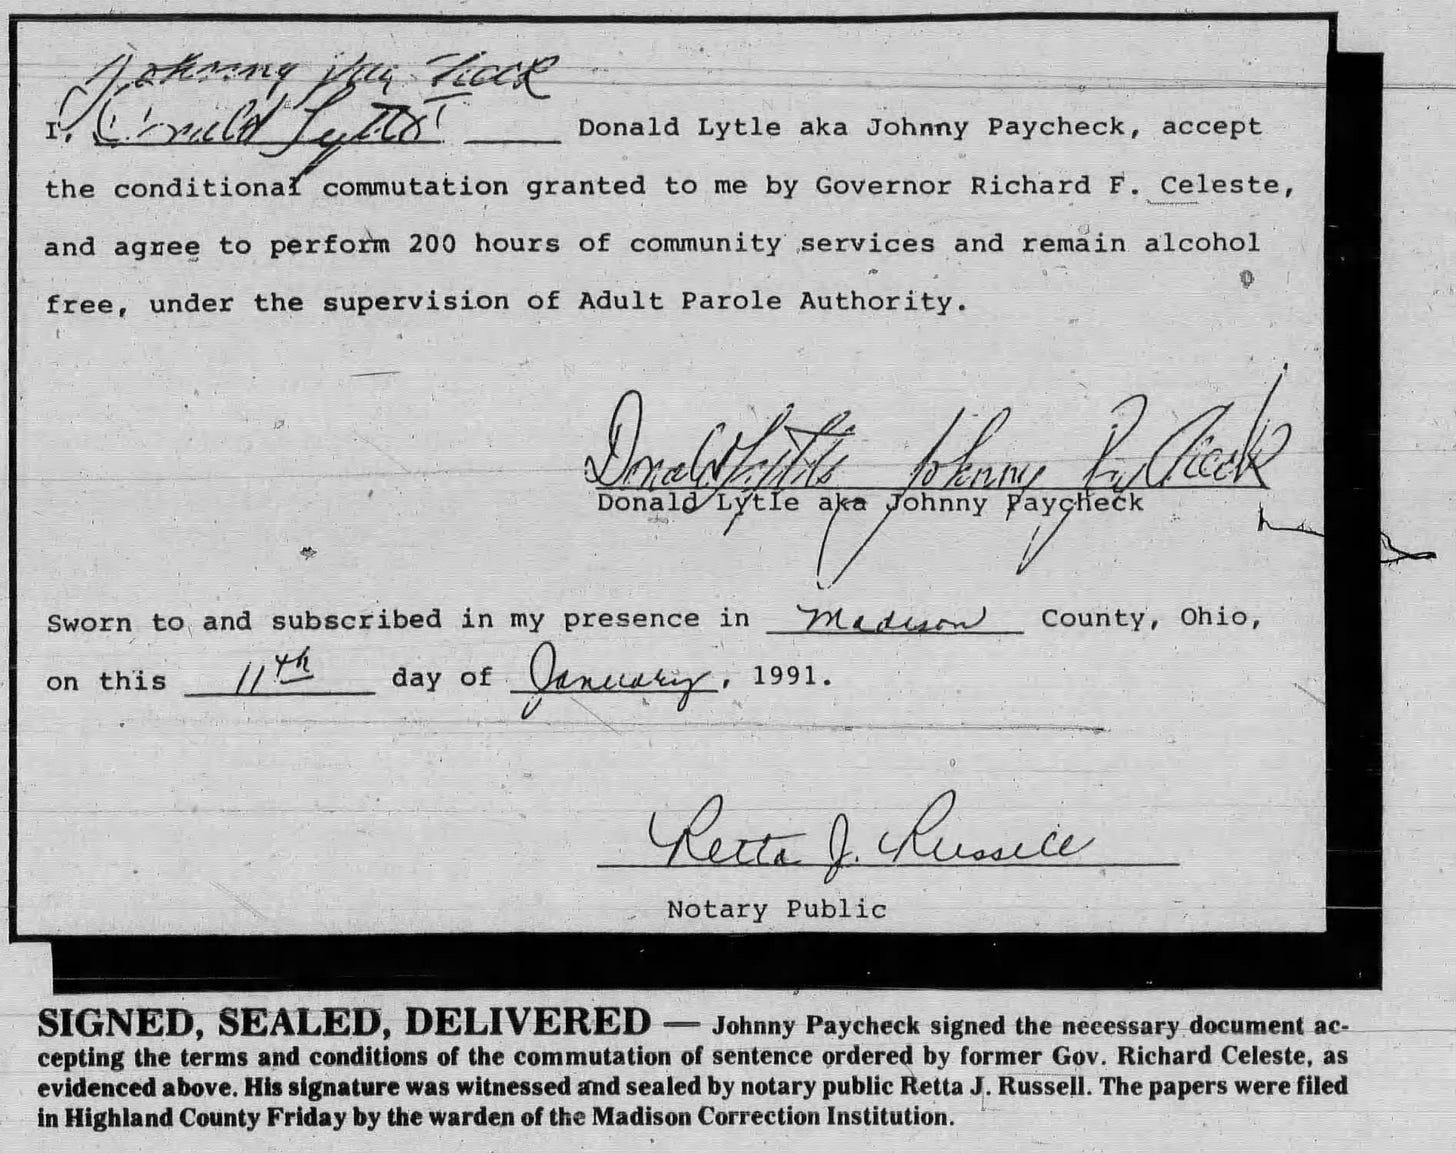 Johnny PayCheck
I, Donald Lytle Donald Lytle aka Johnny Paycheck, accept
the conditional commutation granted to me by Governor Richard F. Celeste,
and agree to perform 200 hours of community services and remain alcohol
free, under the supervision of Adult Parole Authority.
Donald Lytle Johnny PayCheck
Donald Lytle aka Johnny Paycheck
Sworn to and subscribed in my presence in Madison County, Ohio,
on this 11th day of January, 1991.
Retta J. Russell
Notary Public
SIGNED, SEALED, DELIVERED — Johnny Paycheck signed the necessary document ac-
cepting the terms and conditions of the commutation of sentence ordered by former Gov. Richard Celeste, as
evidenced above. His signature was witnessed and sealed by notary public Retta J. Russell. The papers were filed
in Highland County Friday by the warden of the Madison Correction Institution.